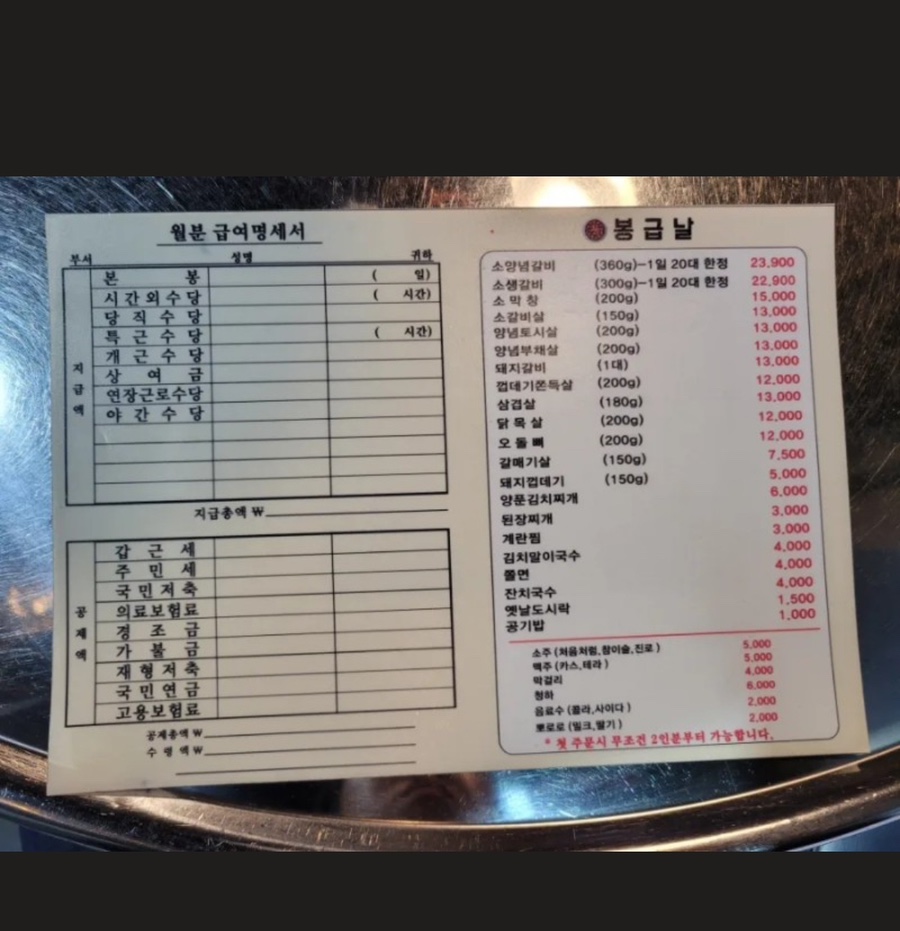 월분 급여명세서
부서 성명 귀하
지급액
본 봉 ( 일)
시간외수당 ( 시간)
당 직 수 당
특 근 수 당 ( 시간)
개 근 수 당
상 여 금
연장근로수당
야 간 수 당
지급총액 ₩
공제액
갑 근 세
주 민 세
국민저축
의료보험료
경 조 금
가 불 금
재형저축
국민연금
고용보험료
공제총액 ₩
수 령 액 ₩
봉급날
소양념갈비 (360g)-1일 20대 한정 23,900
소생갈비 (300g)-1일 20대 한정 22,900
소 막 창 (200g) 15,000
소갈비살 (150g) 13,000
양념토시살 (200g) 13,000
양념부채살 (200g) 13,000
돼지갈비 (1대) 13,000
껍데기쫀득살 (200g) 12,000
삼겹살 (180g) 13,000
닭 목 살 (200g) 12,000
오 돌 뼈 (200g) 12,000
갈매기살 (150g) 7,500
돼지껍데기 (150g) 5,000
양푼김치찌개 6,000
된장찌개 3,000
계란찜 3,000
김치말이국수 4,000
쫄면 4,000
잔치국수 4,000
옛날도시락 1,500
공기밥 1,000
소주 (처음처럼,참이슬,진로) 5,000
맥주 (카스,테라) 5,000
막걸리 4,000
청하 6,000
음료수 (콜라,사이다) 2,000
뽀로로 (밀크,딸기) 2,000
* 첫 주문시 무조건 2인분부터 가능합니다.